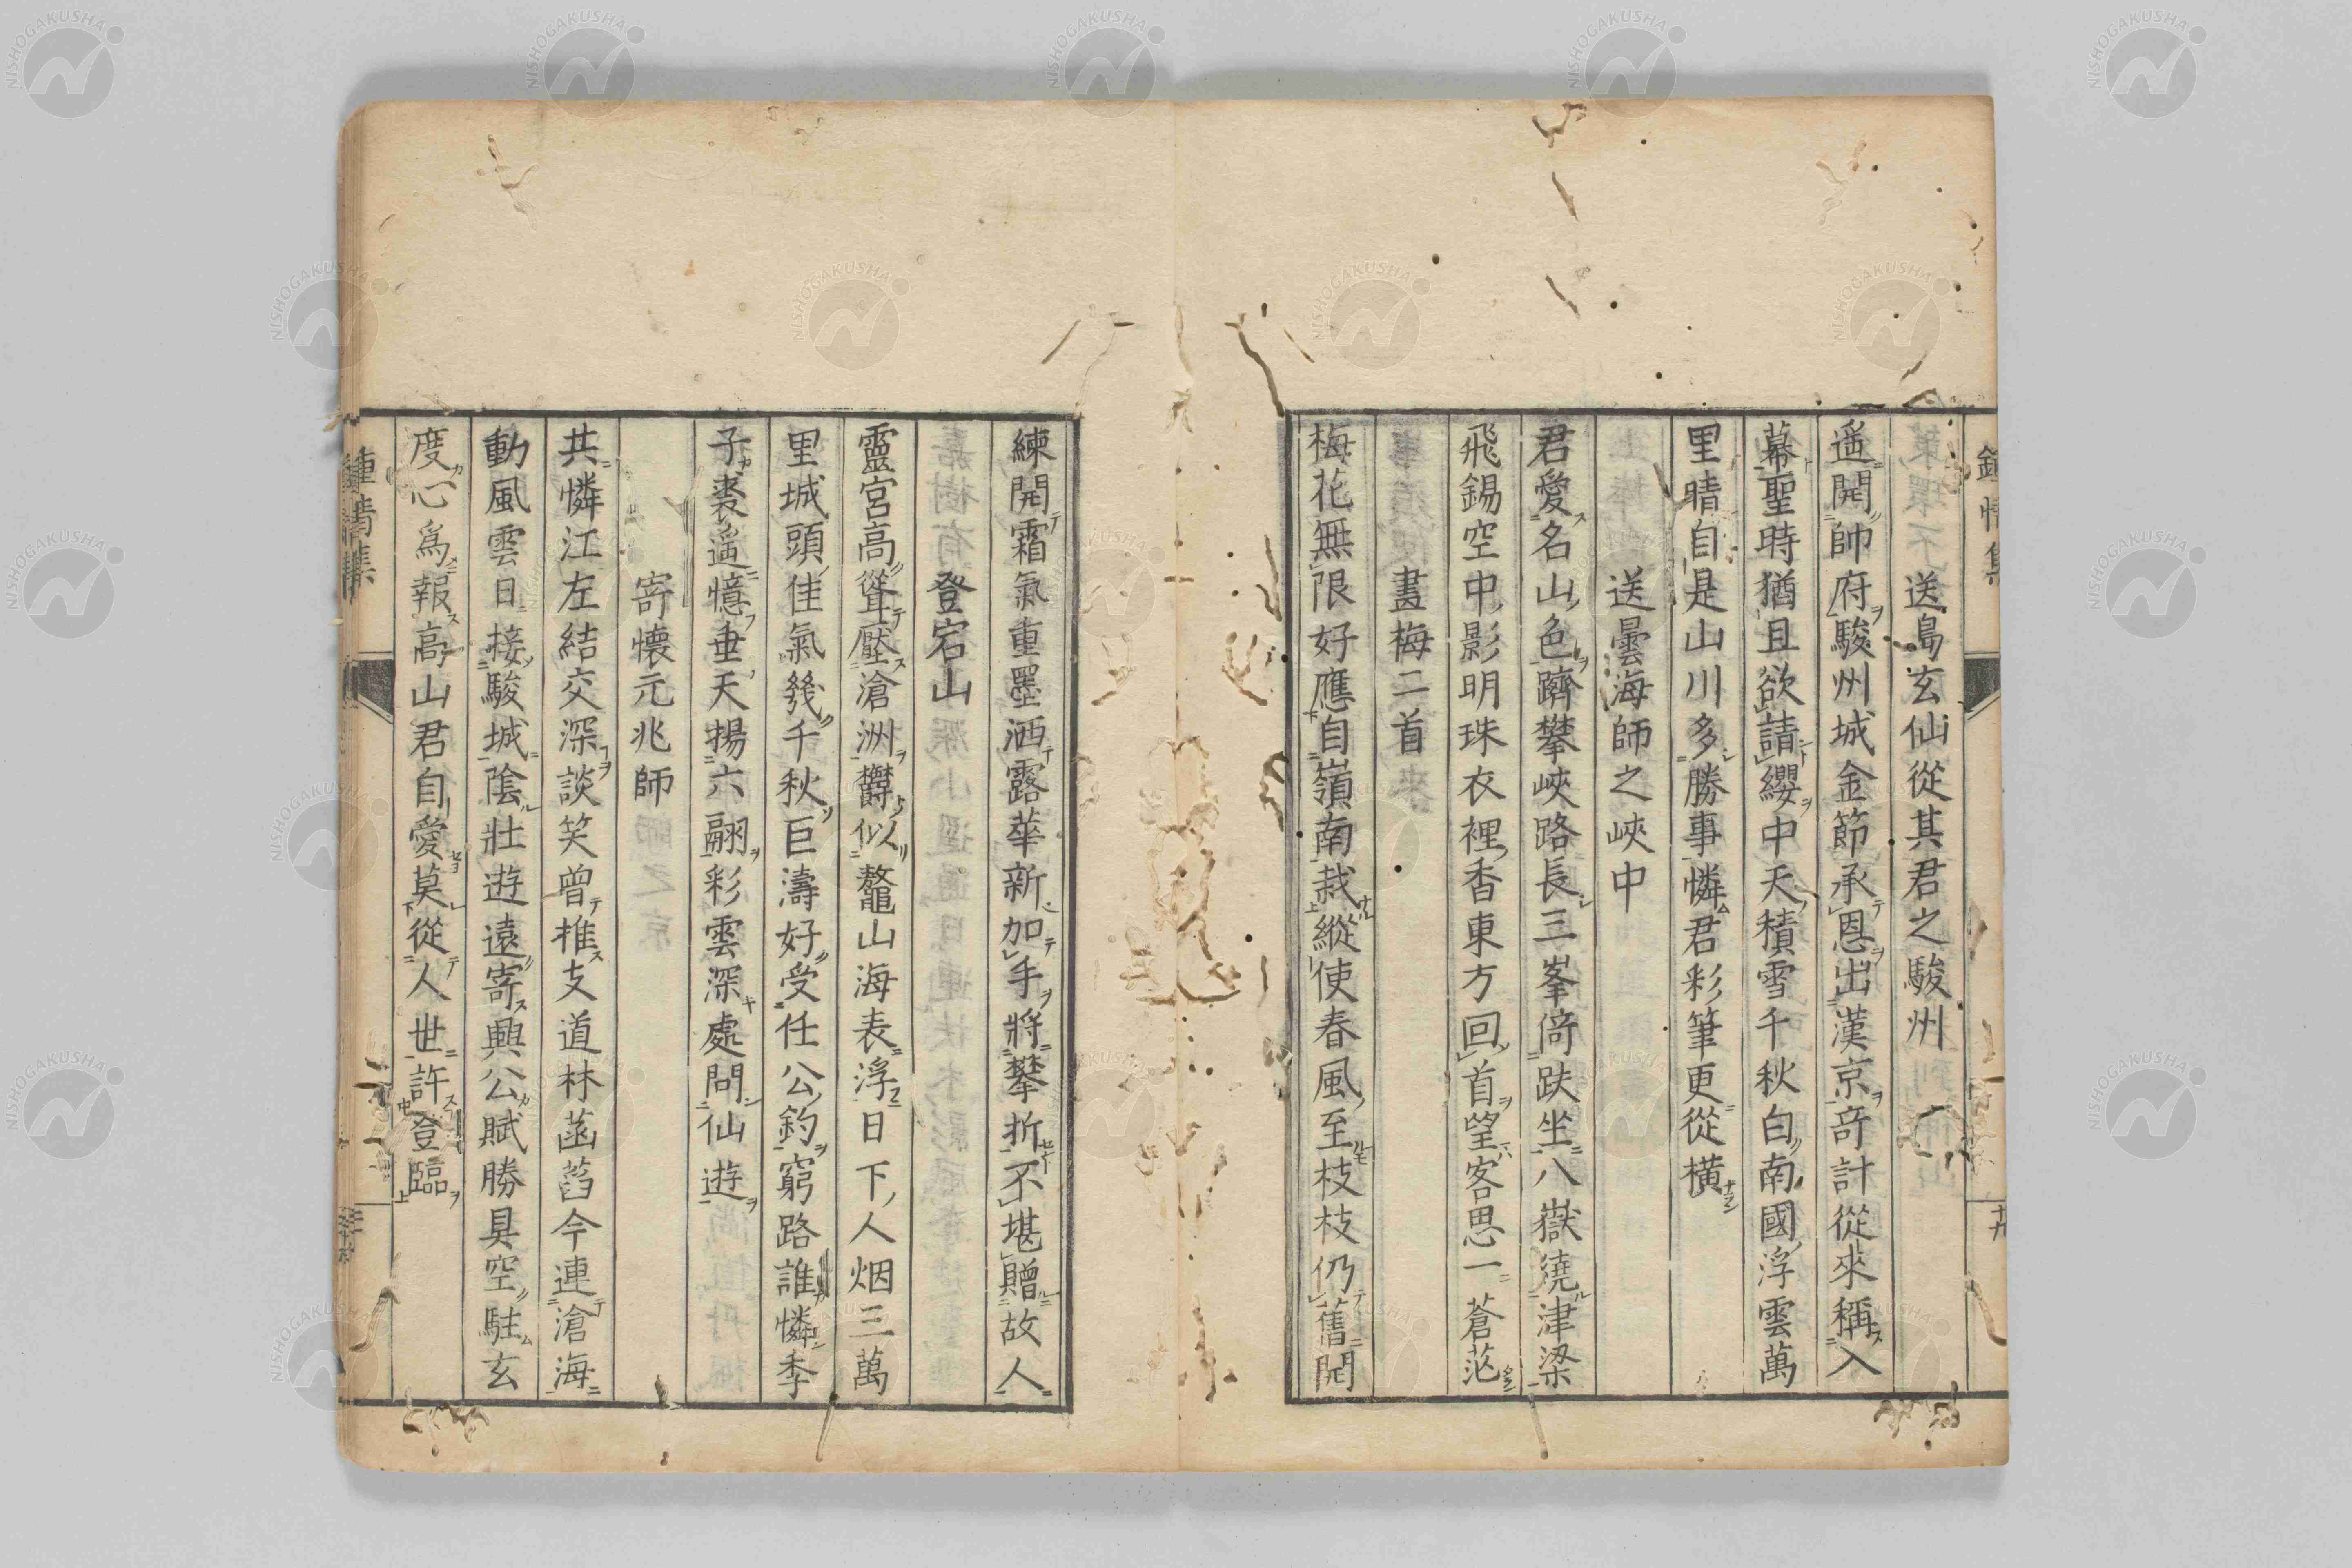 送島玄仙從其君之駿州
遥開帥府駿州城金節承恩出漢京奇計從來稱入
幕聖時猶且欲請纓中天積雪千秋白南國浮雲萬
里晴自是山川多勝事憐君彩筆更從橫
送曇海師之峽中
君愛名山色躋攀峽路長三峯倚趺坐八嶽繞津梁
飛錫空中影明珠衣裡香東方回首望客思一蒼茫
畫梅二首
梅花無限好應自嶺南栽縱使春風至枝枝仍舊開
練開霜氣重墨洒露華新加手將攀折不堪贈故人
登宕山
靈宮高聳壓滄洲欝似鼇山海表浮日下人烟三萬
里城頭佳氣幾千秋巨濤好受任公釣窮路誰憐季
子裘遥憶垂天揚六翮彩雲深處問仙遊
寄懷元兆師
共憐江左結交深談笑曾推支道林菡萏今連滄海
動風雲日接駿城陰壯遊遠寄興公賦勝具空駐玄
度心爲報高山君自愛莫從人世許登臨
鍾情集
十九
NISHOGAKUSHA